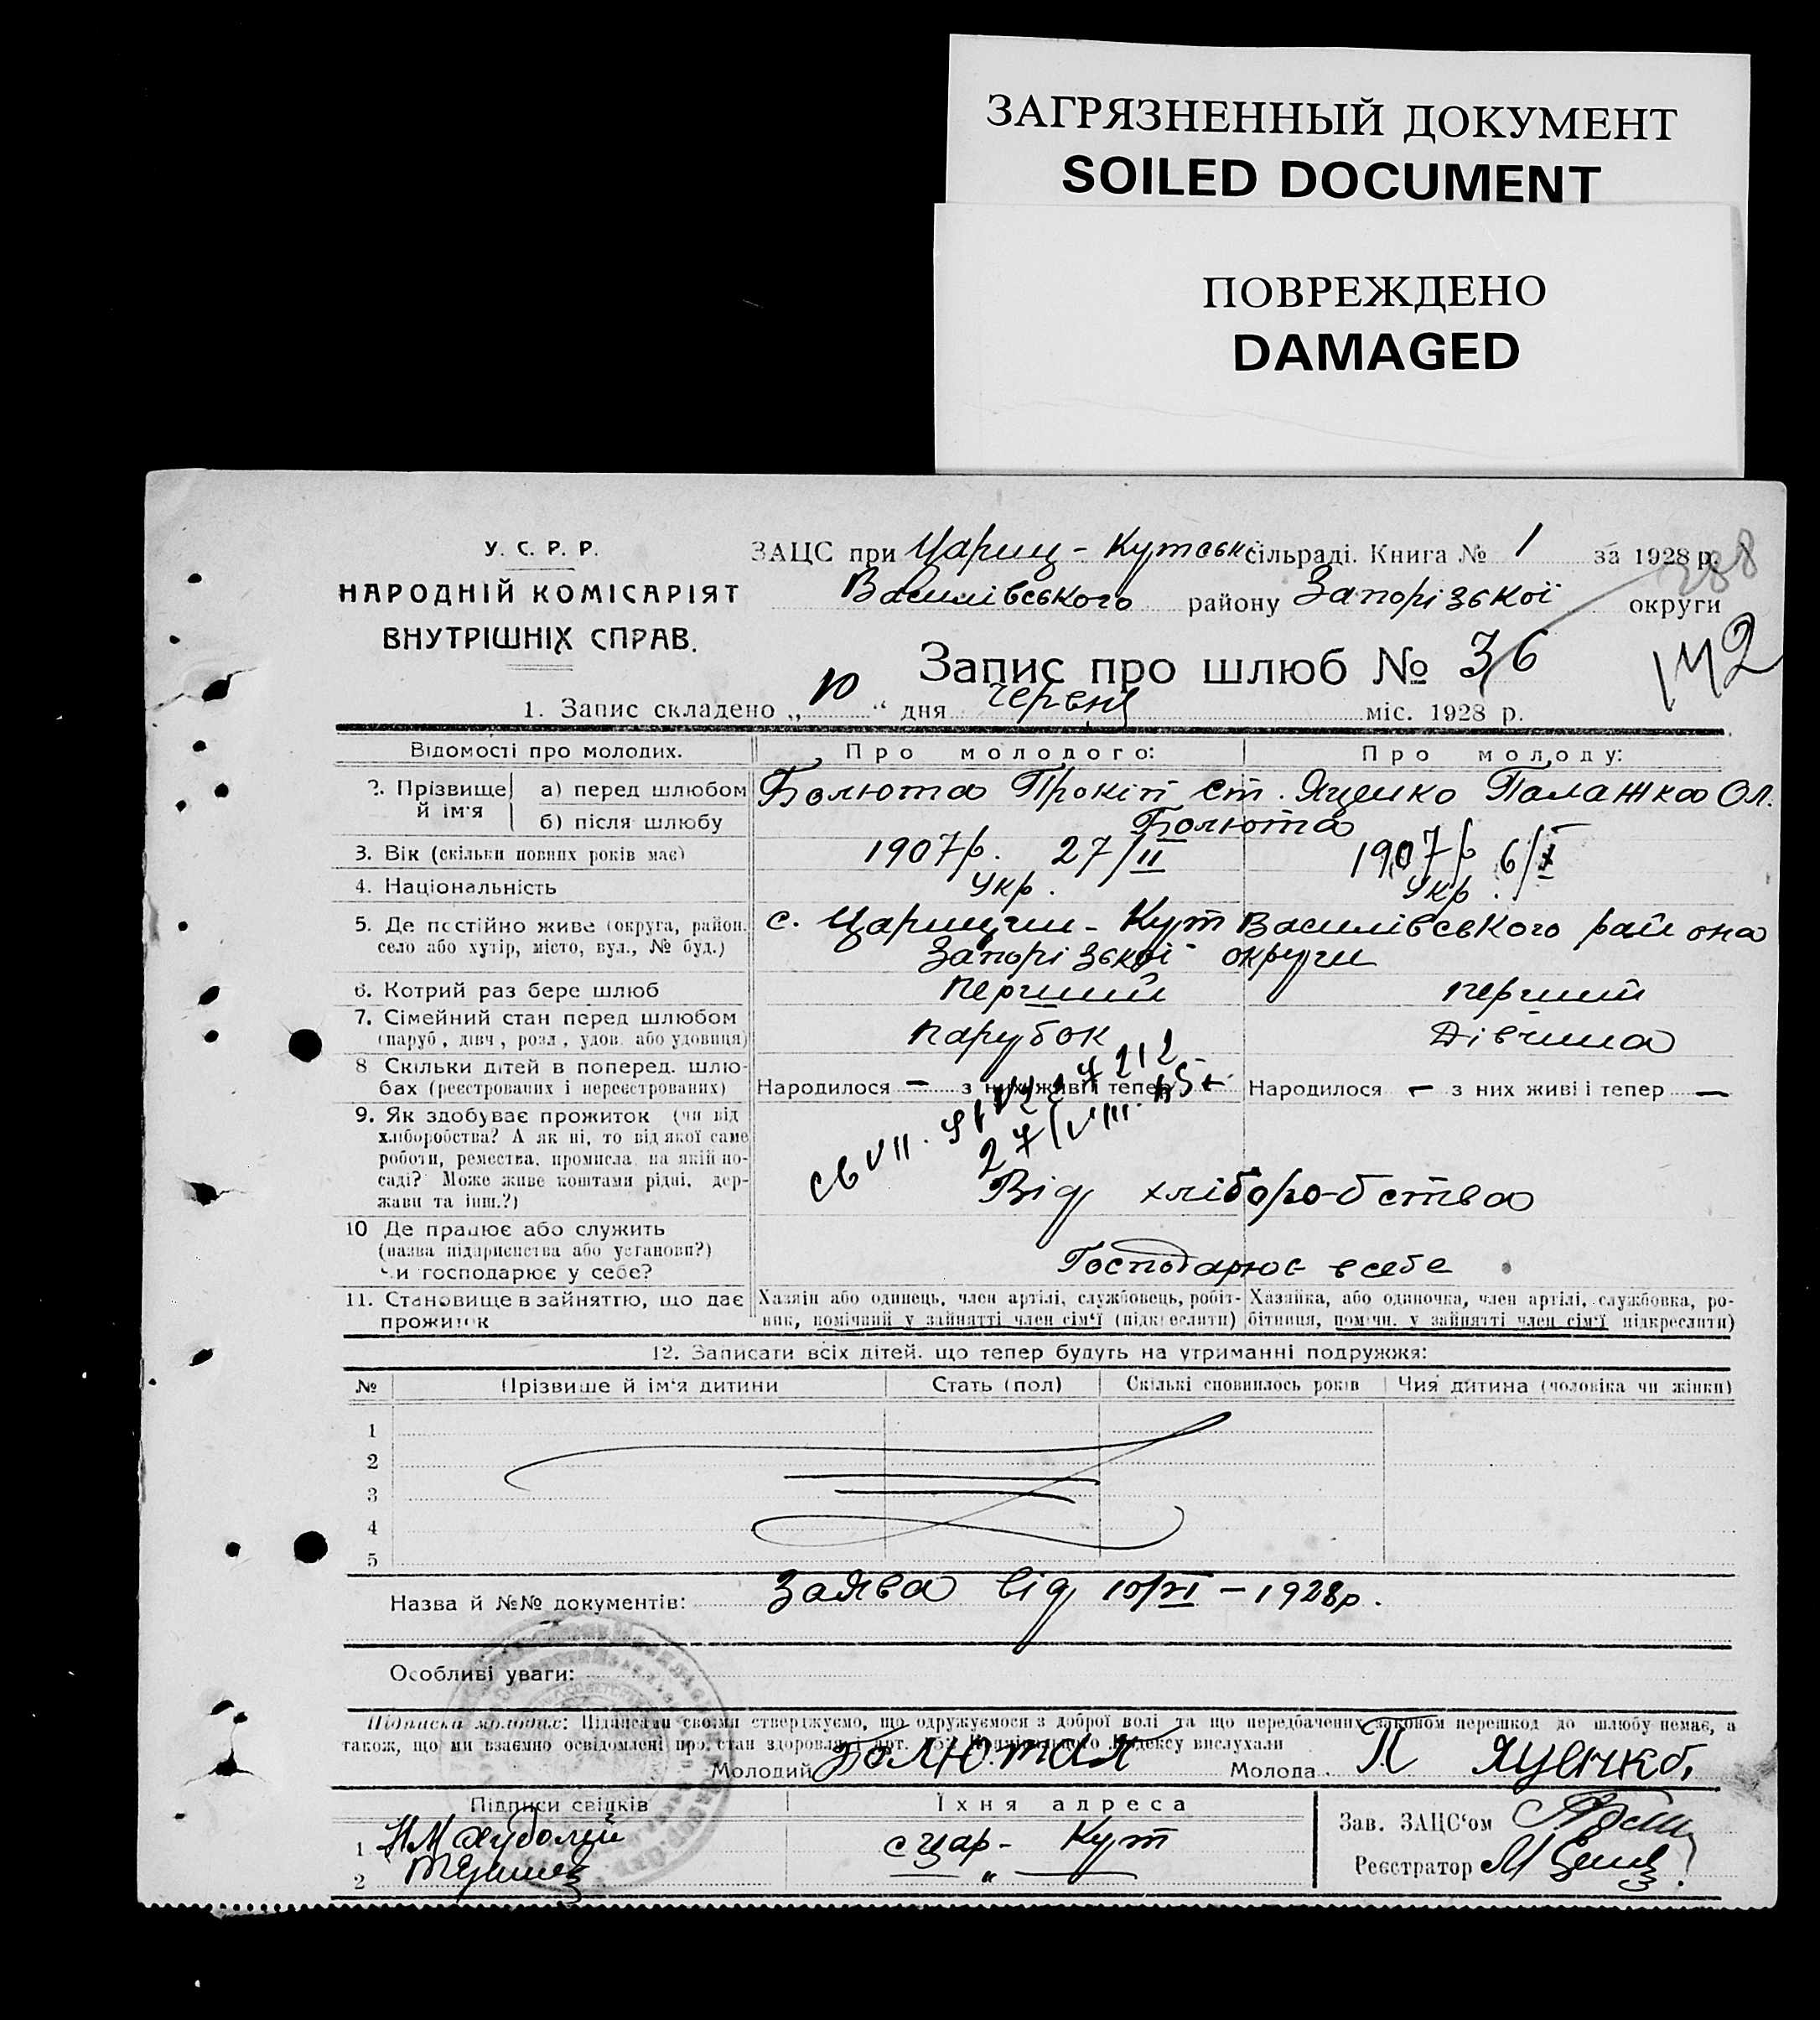 ЗАГРЯЗНЕННЫЙ ДОКУМЕНТ
SOILED DOCUMENT
ПОВРЕЖДЕНО
DAMAGED
У. С. Р. Р.
НАРОДНІЙ КОМІСАРІЯТ
ВНУТРІШНІХ СПРАВ.
ЗАЦС при Цариц-Кутськ сільраді. Книга № 1 за 1928 р.
388
Василівського району Запорізької округи
Запис про шлюб № 36
142
1. Запис складено „10“ дня червня міс. 1928 р.
Відомості про молодих. Про молодого: Про молоду:
2. Прізвище й ім'я а) перед шлюбом Болюта Прокіп Ст. Яценко Палажка Ол.
б) після шлюбу Болюта
3. Вік (скільки повних років має) 1907р. 27/II 1907р 6/X
4. Національність Укр. Укр.
5. Де постійно живе (округа, район, село або хутір, місто, вул., № буд.) с. Царицин-Кут Василівського района
Запорізької округи
6. Котрий раз бере шлюб перший перший
7. Сімейний стан перед шлюбом (паруб, дівч, розл, удов. або удовиця) парубок Дівчина
8 Скільки дітей в поперед. шлюбах (реєстрованих і нереєстрованих) Народилося — з них живі і тепер Народилося — з них живі і тепер —
9. Як здобуває прожиток (чи від
хліборобства? А як ні, то від якої саме
роботи, ремества, промисла, на якій по-
саді? Може живе коштами рідні, дер-
жави та інш.?)
27/VIII
Від хліборобства
10 Де працює або служить
(назва підприємства або установи?)
чи господарює у себе?
Господарює в себе
11. Становище в зайняттю, що дає прожиток
Хазяїн або одинець, член артілі, службовець, робіт-
ник, помічний у зайнятті член сім'ї (підкреслити)
Хазяйка, або одиночка, член артілі, службовка, ро-
бітниця, помічн. у зайнятті член сім'ї підкреслити)
12. Записати всіх дітей. що тепер будуть на утриманні подружжя:
№ Прізвище й ім'я дитини Стать (пол) Скількі сповнилось років Чия дитина (чоловіка чи жінки)
1
2
3
4
5
Назва й №№ документів: Заява від 10/VI – 1928р.
Особливі уваги:
Підписка молодих: Підписами своїми стверджуємо, що одружуємося з доброї волі та що передбачених законом перешкод до шлюбу немає, а
також, що ми взаємно освідомлені про стан здоровля і арт. Кодексу вислухали
Молодий Молода П Яценко
Підписи свідків Їхня адреса
1 с Цар- Кут
2 — „ —
Зав. ЗАЦС'ом
Реєстратор